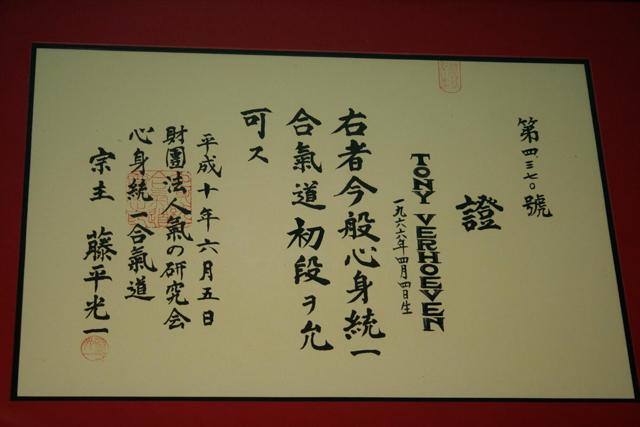 第四三七〇號
證
TONY VERHOEVEN
一九六六年四月四日生
右者今般心身統一
合氣道初段ヲ允
可ス
平成十年六月五日
財團法人氣の研究会
心身統一合氣道
宗主 藤平光一